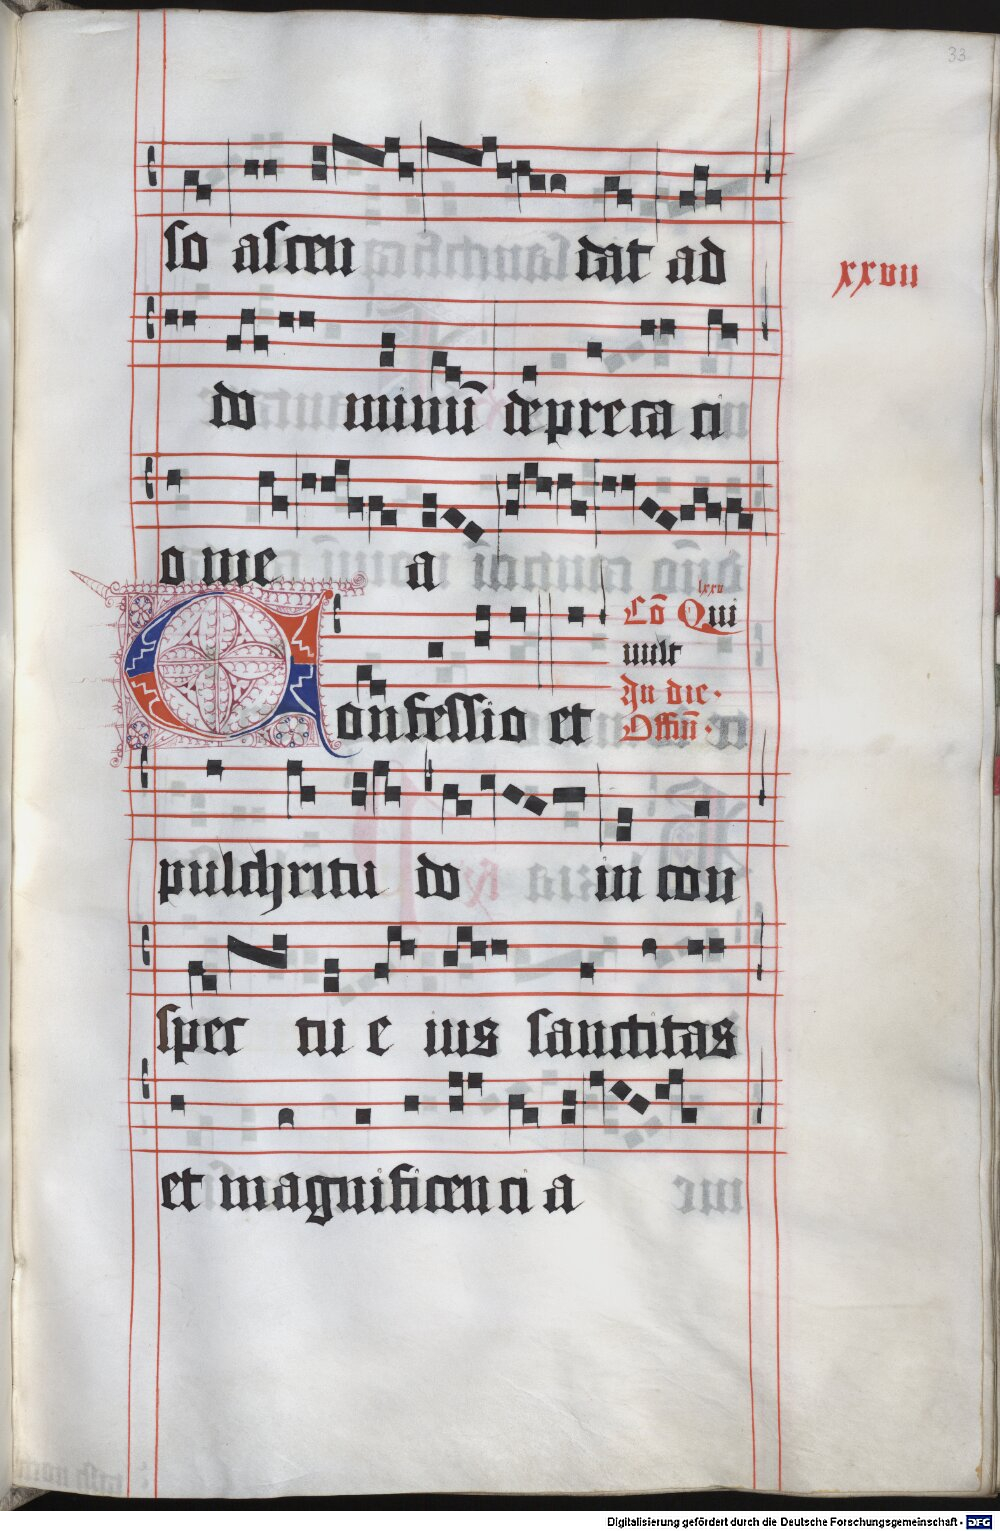 33
so ascen dat ad
xxvii
do minū depreca ci
o me a
lxxv
Cō Qui
vult
In die·
Offm̄·
Confessio et
pulchritu do in con
spec tu e ius sanctitas
et magnificen ci a
Digitalisierung gefördert durch die Deutsche Forschungsgemeinschaft - DFG